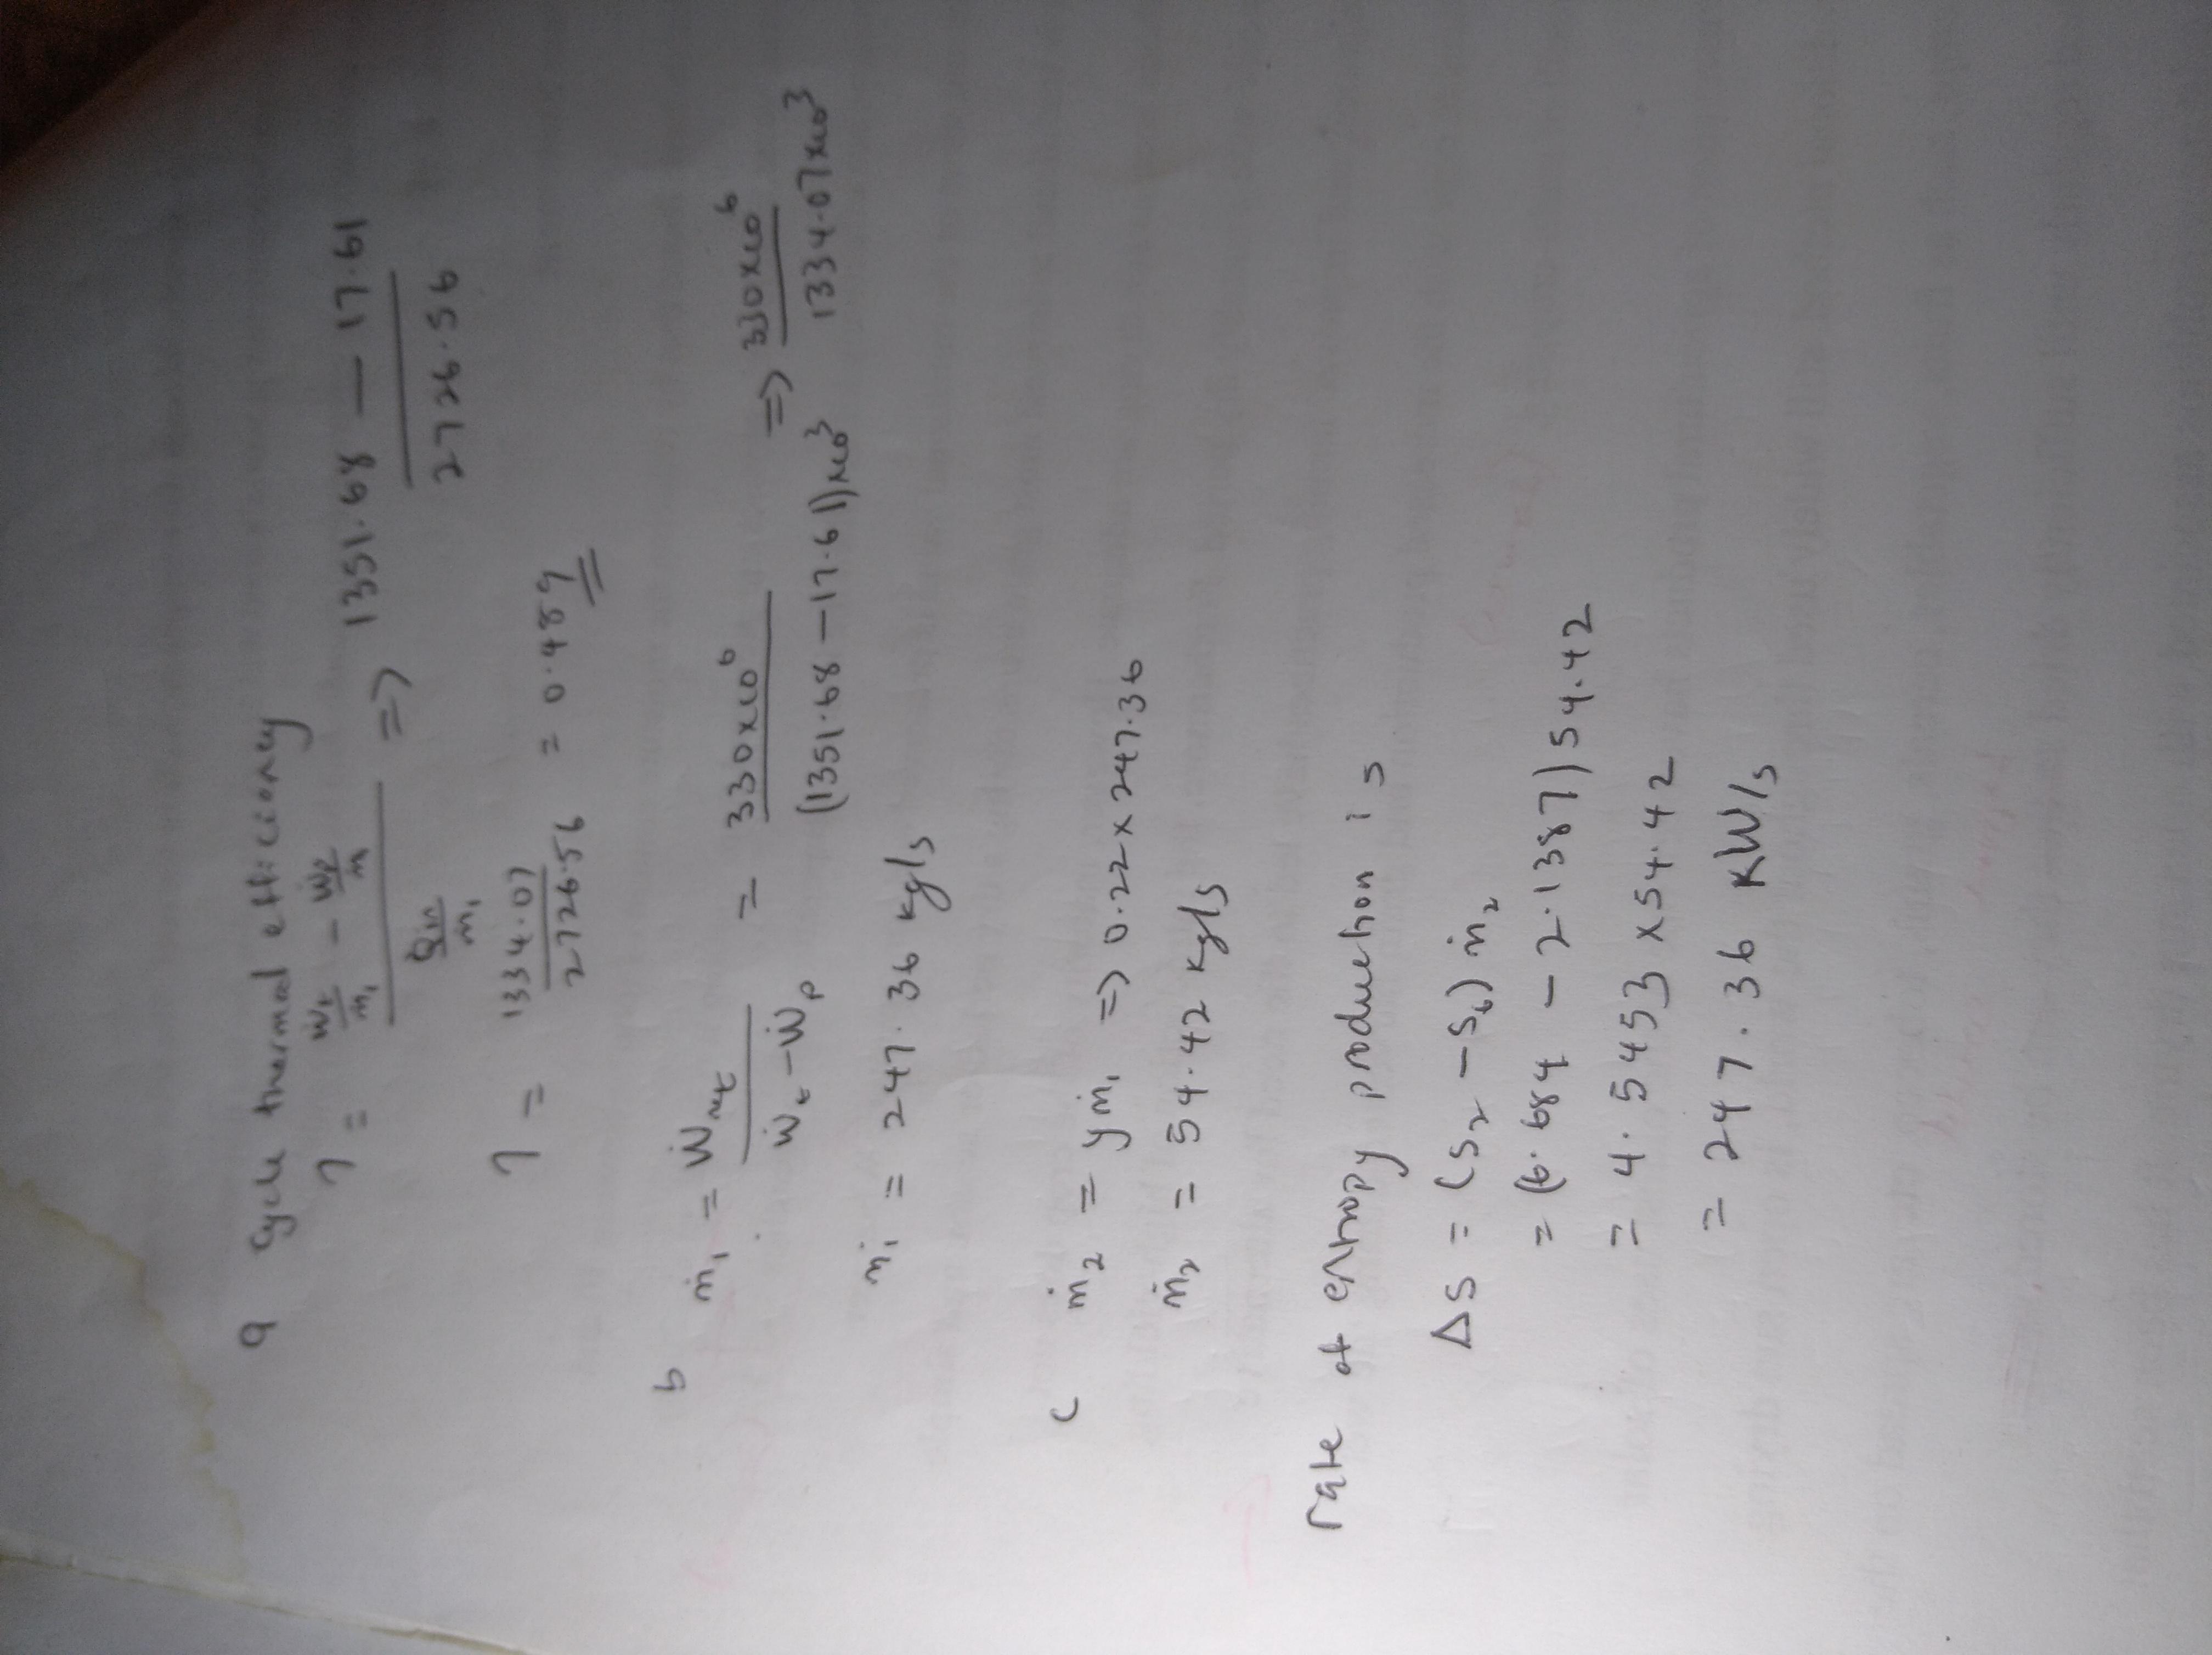 a cycle thermal efficiency
η = Ẇt/ṁ1 - Ẇp/ṁ / Q̇in/ṁ1 => 1351.68 - 17.61 / 2726.56
η = 1334.07 / 2726.56 = 0.489
b ṁ1 = Ẇnet / Ẇt - Ẇp = 330x10^6 / (1351.68 - 17.61)x10^3 => 330x10^6 / 1334.07x10^3
ṁ1 = 247.36 kg/s
c ṁ2 = yṁ1 => 0.22 x 247.36
ṁ2 = 54.42 kg/s
rate of entropy production is
ΔS = (S2 - S6) ṁ2
= (6.684 - 2.1387) 54.42
= 4.5453 x 54.42
= 247.36 KW/s